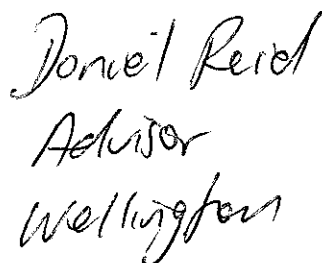 Daniel Reid
Advisor
Wellington